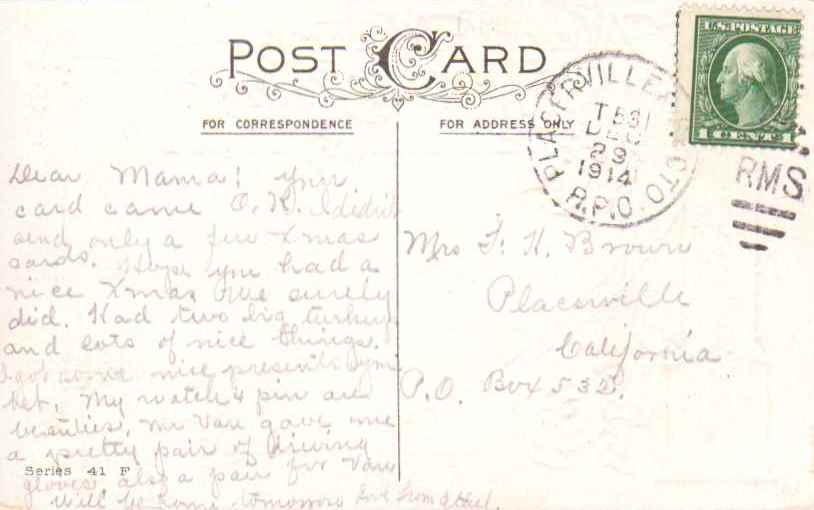 POST CARD
FOR CORRESPONDENCE
FOR ADDRESS ONLY
U.S. POSTAGE
1 CENT 1
PLACERVILLE & SACTO
T 531
DEC
29
1914
R.P.O.
RMS
Dear Mama! your
card came O.K. I didn't
send only a few Xmas
cards. Hope you had a
nice Xmas we surely
did. Had two big turkeys
and lots of nice things.
I got some nice presents you
bet. My watch & pin are
beauties. Mr Van gave me
a pretty pair of driving
gloves also a pair for Van
Will be home tomorrow Love from Ethel.
Series 41 F
Mrs F. H. Brown
Placerville
California
P.O. Box 532.